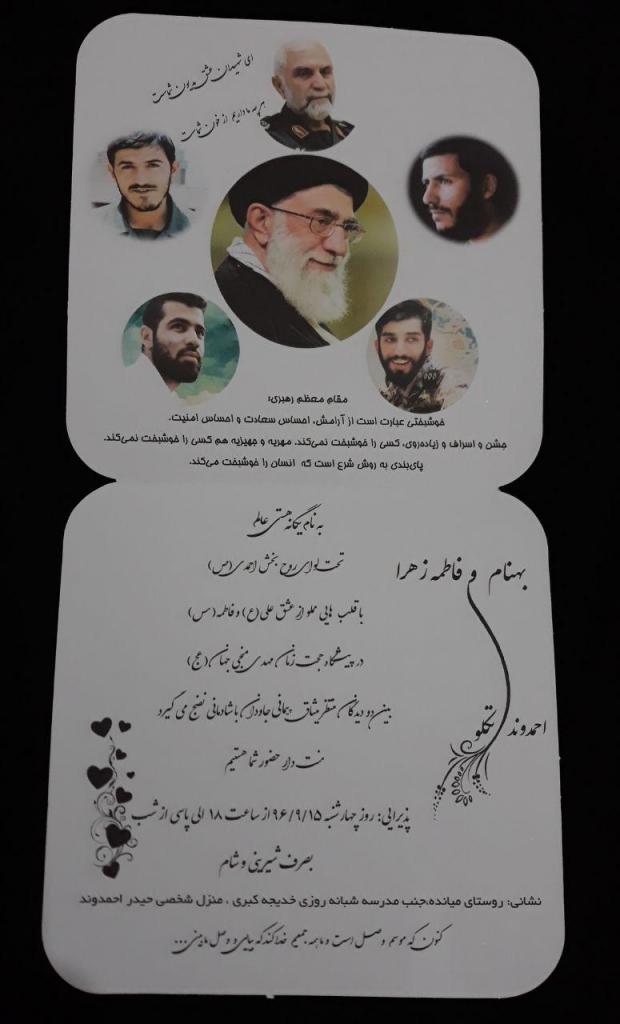 ای شهیدان عشق مدیون شماست
هر چه ما داریم از خون شماست
مقام معظم رهبری:
خوشبختی عبارت است از آرامش، احساس سعادت و احساس امنیت.
جشن و اسراف و زیاده‌روی، کسی را خوشبخت نمی‌کند. مهریه و جهیزیه هم کسی را خوشبخت نمی‌کند.
پای‌بندی به روش شرع است که انسان را خوشبخت می‌کند.
به نام یگانه هستی عالم
بهنام و فاطمه زهرا
تحت لوای روح بخش احمدی(ص)
با قلب هایی مملو از عشق علی(ع) و فاطمه(س)
در پیشگاه حجت زمان مهدی منجی جهان(عج)
بین دو دیدگان منتظر میثاق پیمانی جاودان با شادمانی نضج می گیرد
احمدوند تکلو
منت دار حضور شما هستیم
پذیرایی: روز چهارشنبه ۹۶/۹/۱۵ از ساعت ۱۸ الی پاسی از شب
بصرف شیرینی و شام
نشانی: روستای میانده،جنب مدرسه شبانه روزی خدیجه کبری ، منزل شخصی حیدر احمدوند
کنون که موسم وصل است و ما همه جمعیم خدا کند که بیایی و وصل ما بینی...